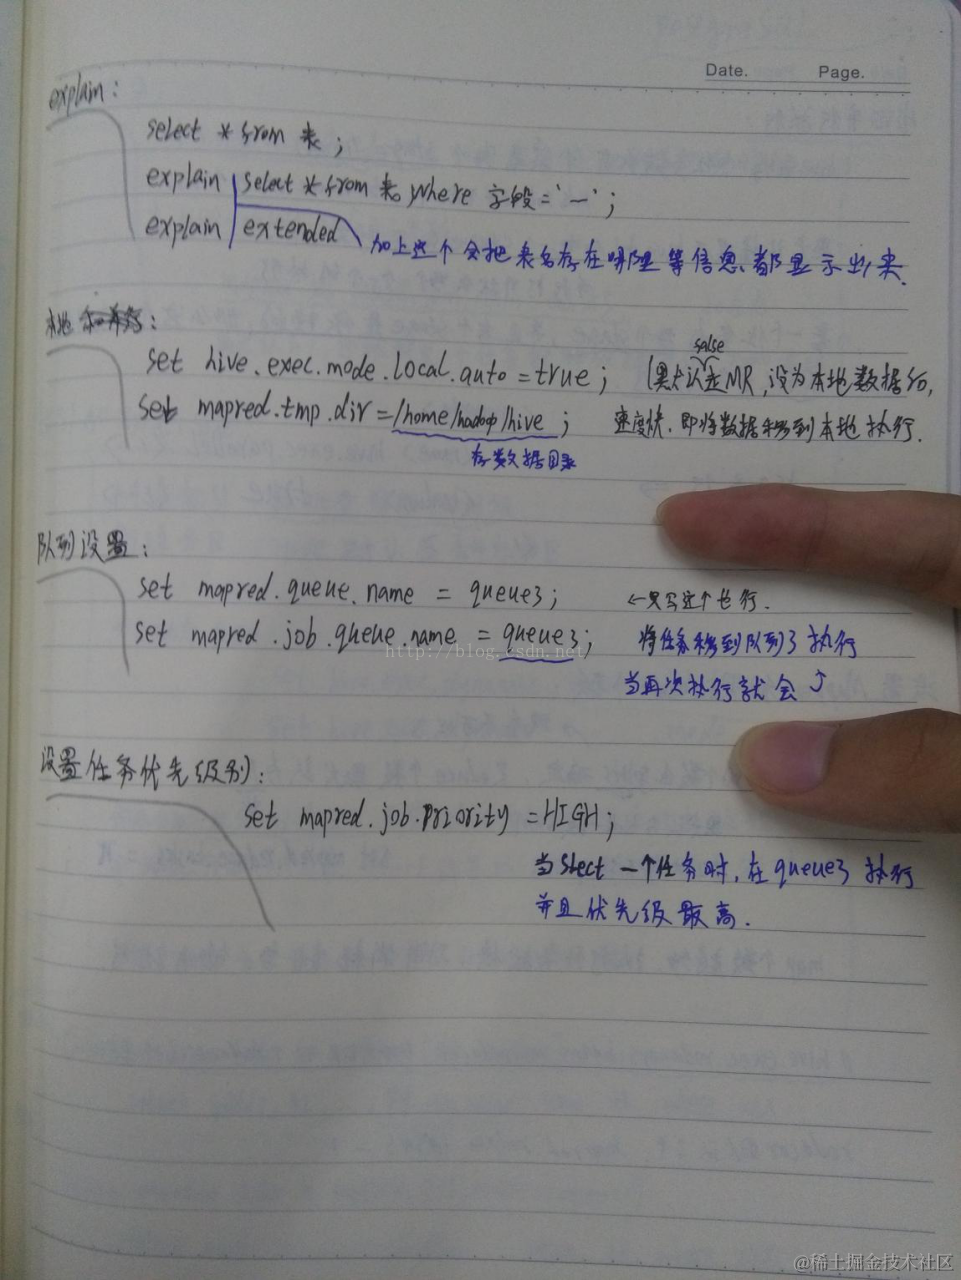 Date. Page.
explain:
select * from 表;
explain select * from 表 where 字段='—';
explain extended 加上这个会把表名存在哪里等信息都显示出来.
本地:
false
set hive.exec.mode.local.auto=true; (默认是MR,设为本地数据后,
set mapred.tmp.dir=/home/hadoop/hive; 速度快.即将数据移到本地执行.
存数据目录
队列设置:
set mapred.queue.name = queue3; ←只写这个也行.
set mapred.job.queue.name = queue3; 将任务移到队列3执行
http://blog.csdn.net/
当再次执行就会
设置任务优先级别:
set mapred.job.priority=HIGH;
当slect一个任务时,在queue3执行
并且优先级最高.
@稀土掘金技术社区